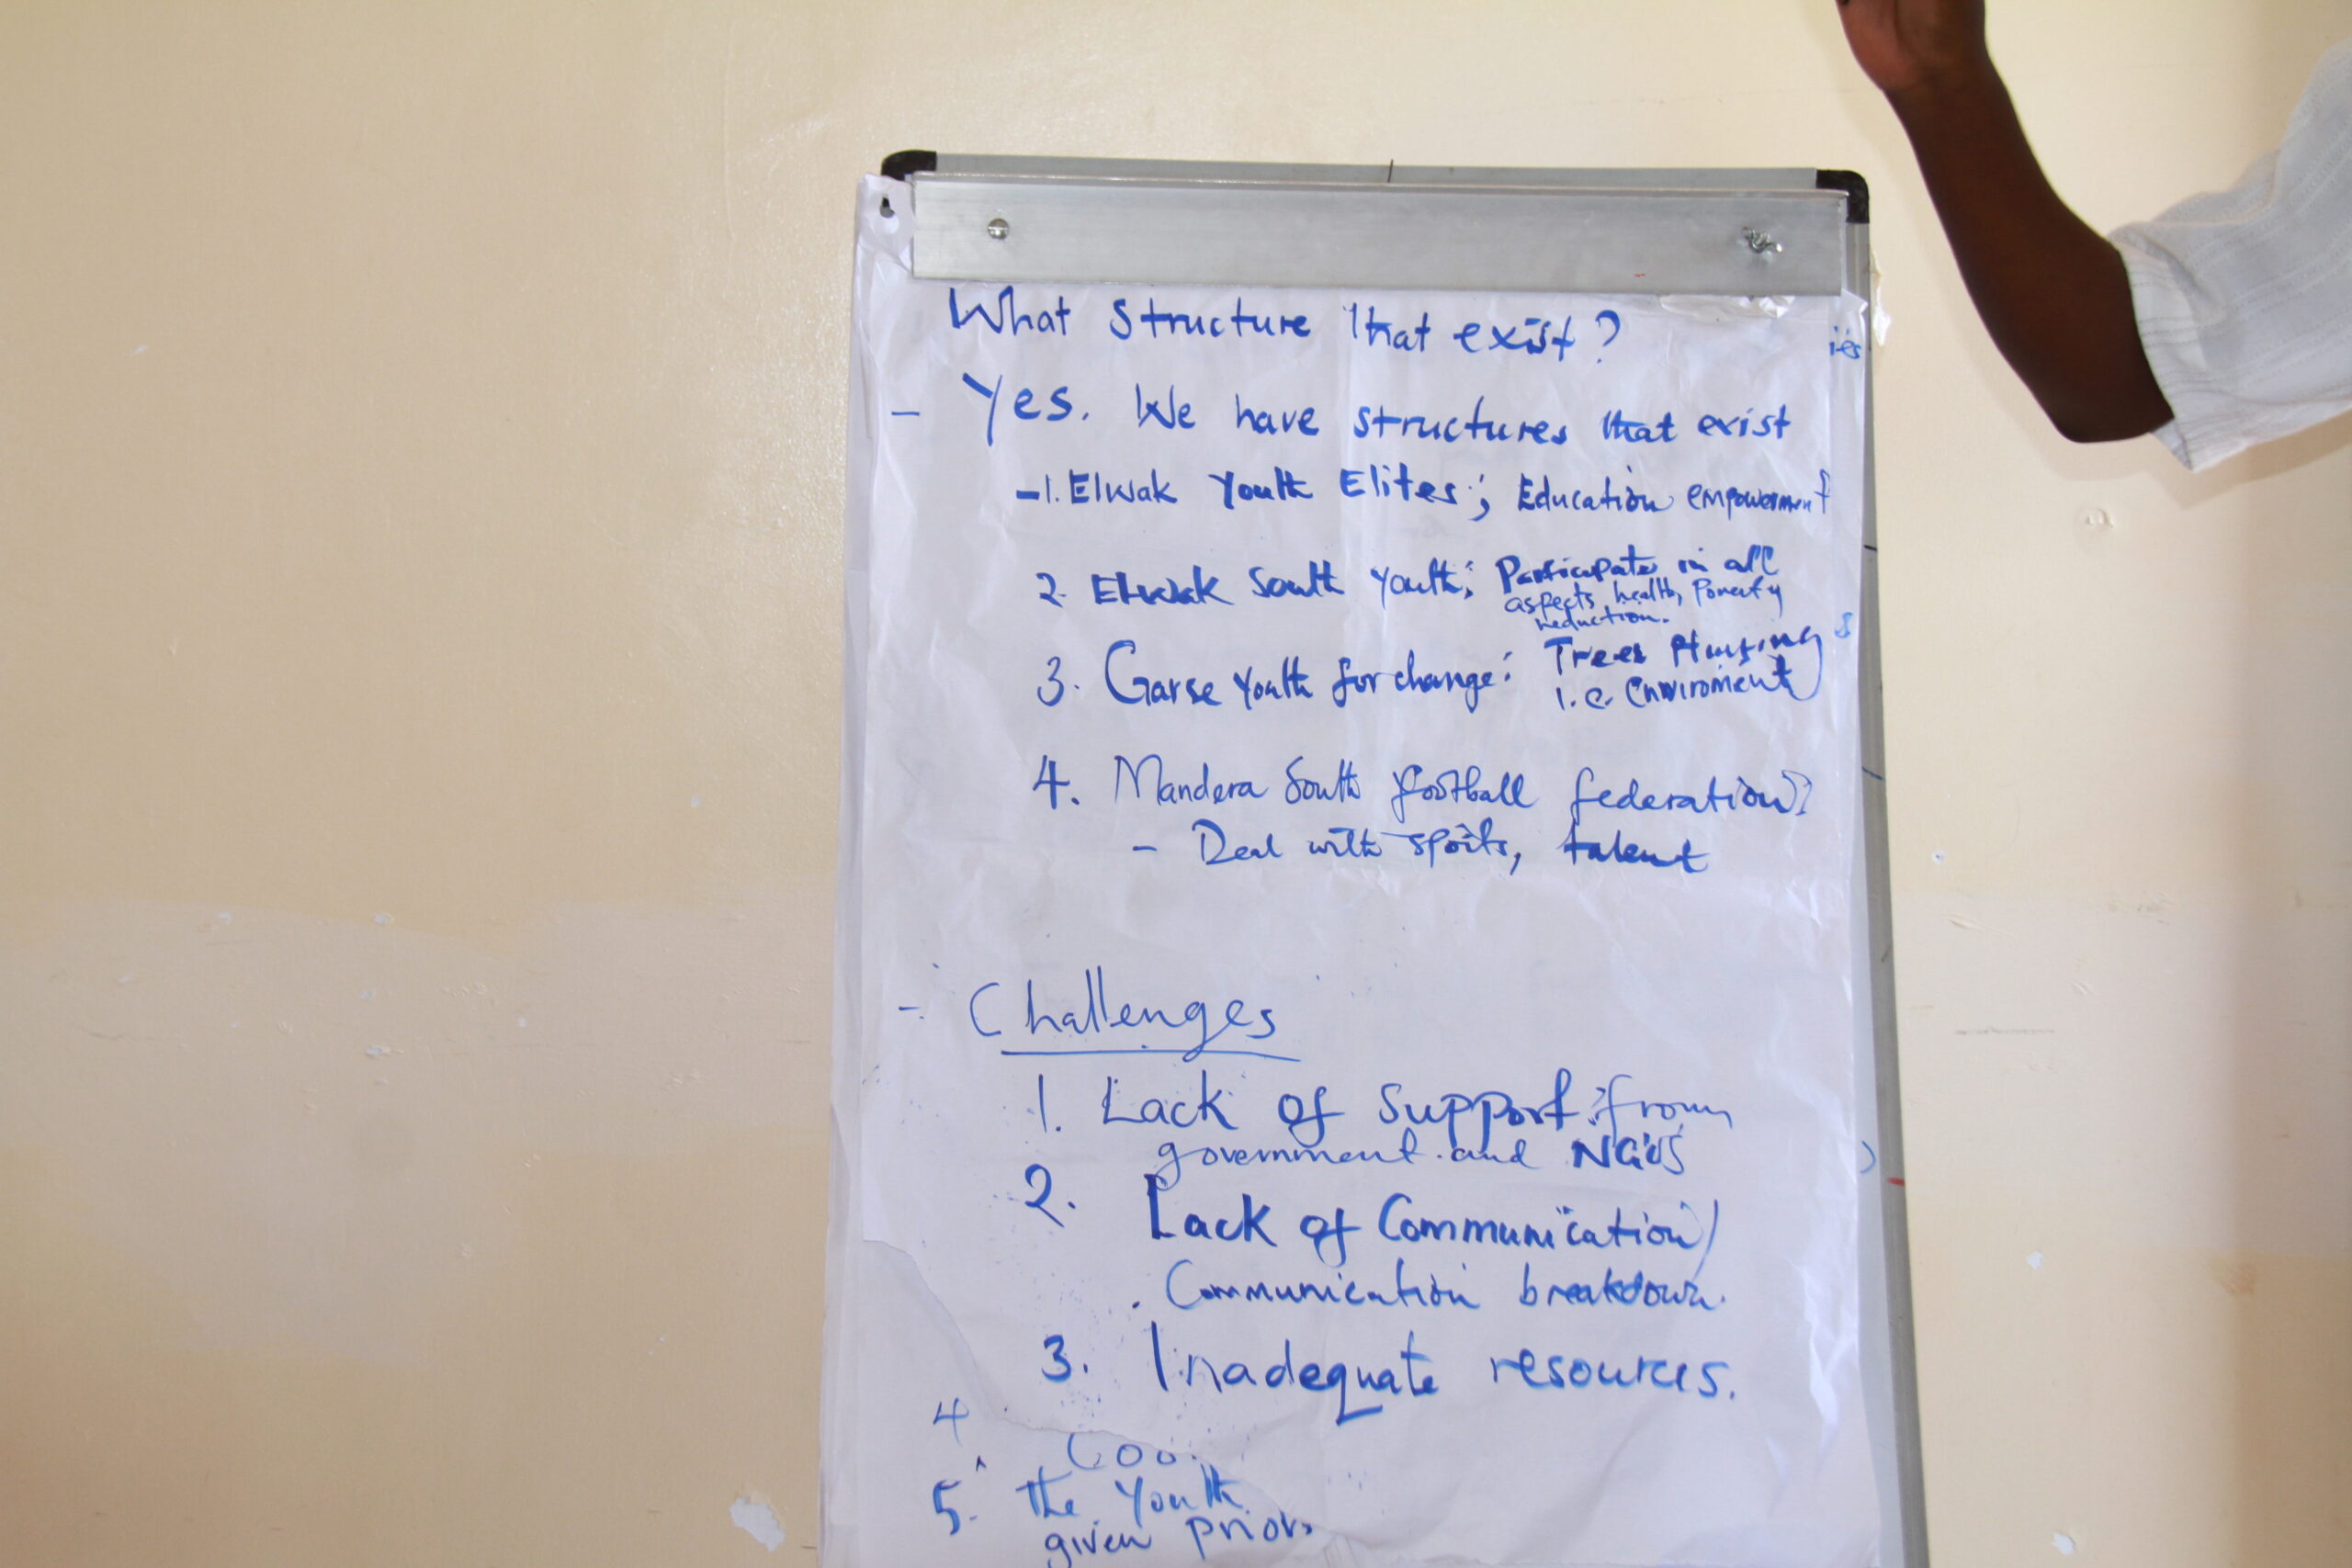 What structure that exist?
- Yes. We have structures that exist
-1. Elwak Youth Elites; Education empowerment
2. Elwak South Youth; Participate in all
aspects, health, Poverty
reduction.
3. Garse Youth for change: Trees
i.e. Enviroment
4. Mandera South football federation:
- Deal with sports, talent
- Challenges
1. Lack of support from
government and NGO's
2. Lack of Communication/
Communication breakdown.
3. Inadequate resources.
4
5. the Youth
given